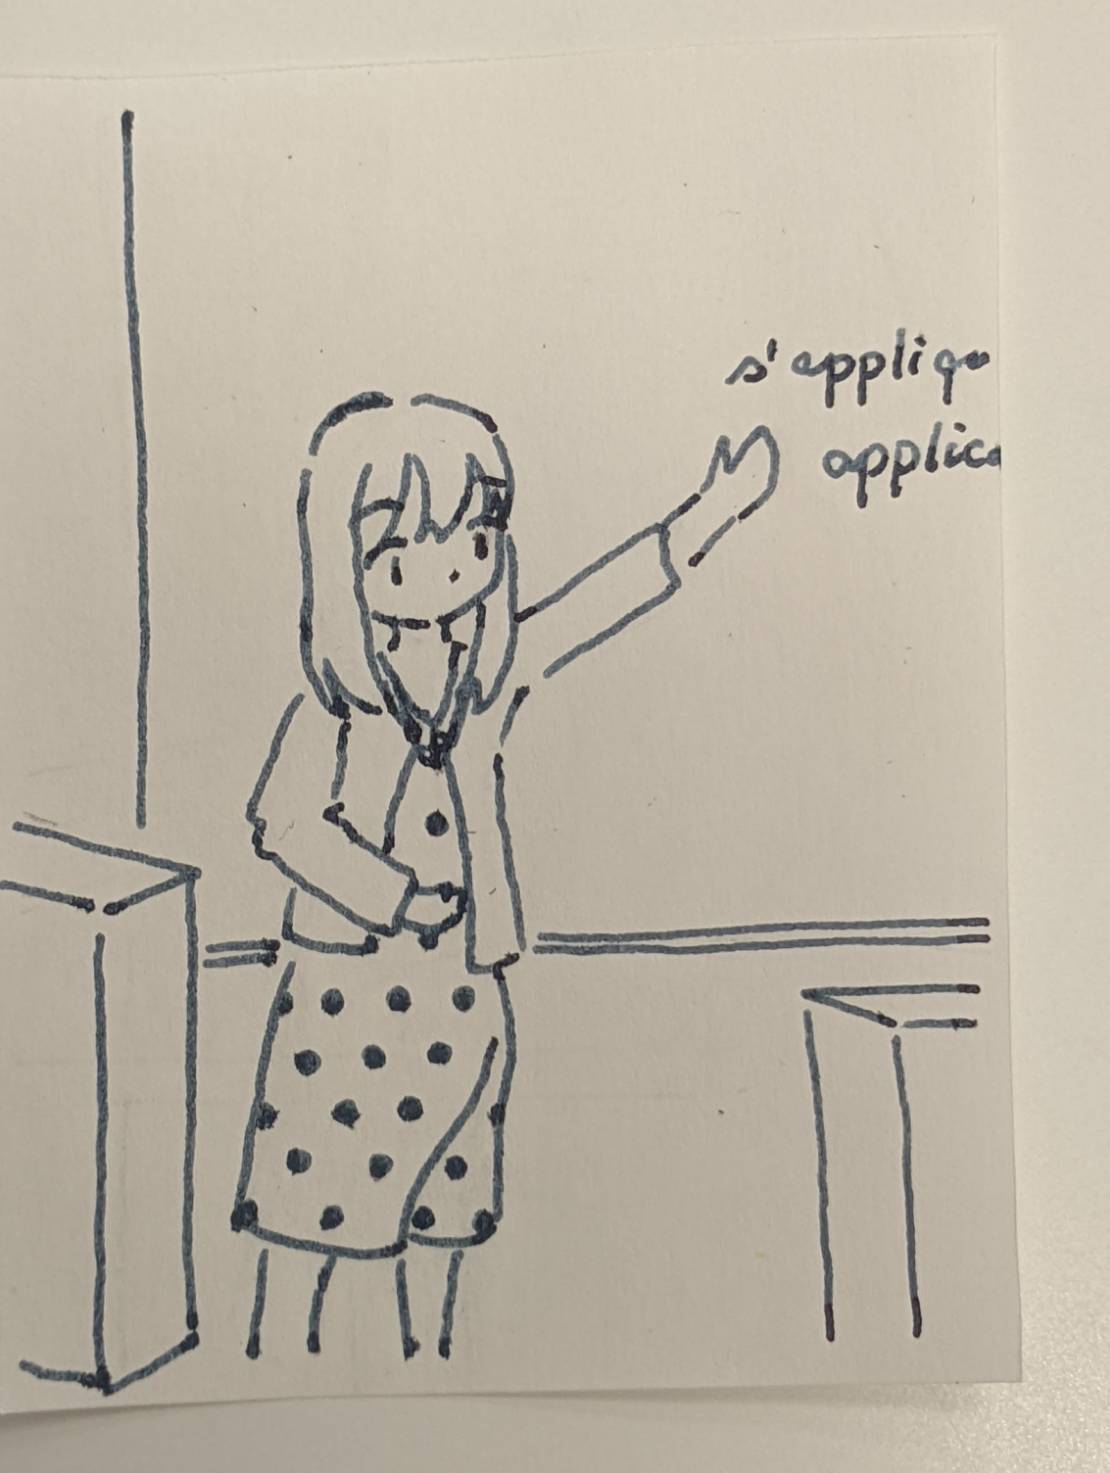 s'appliqu
applica